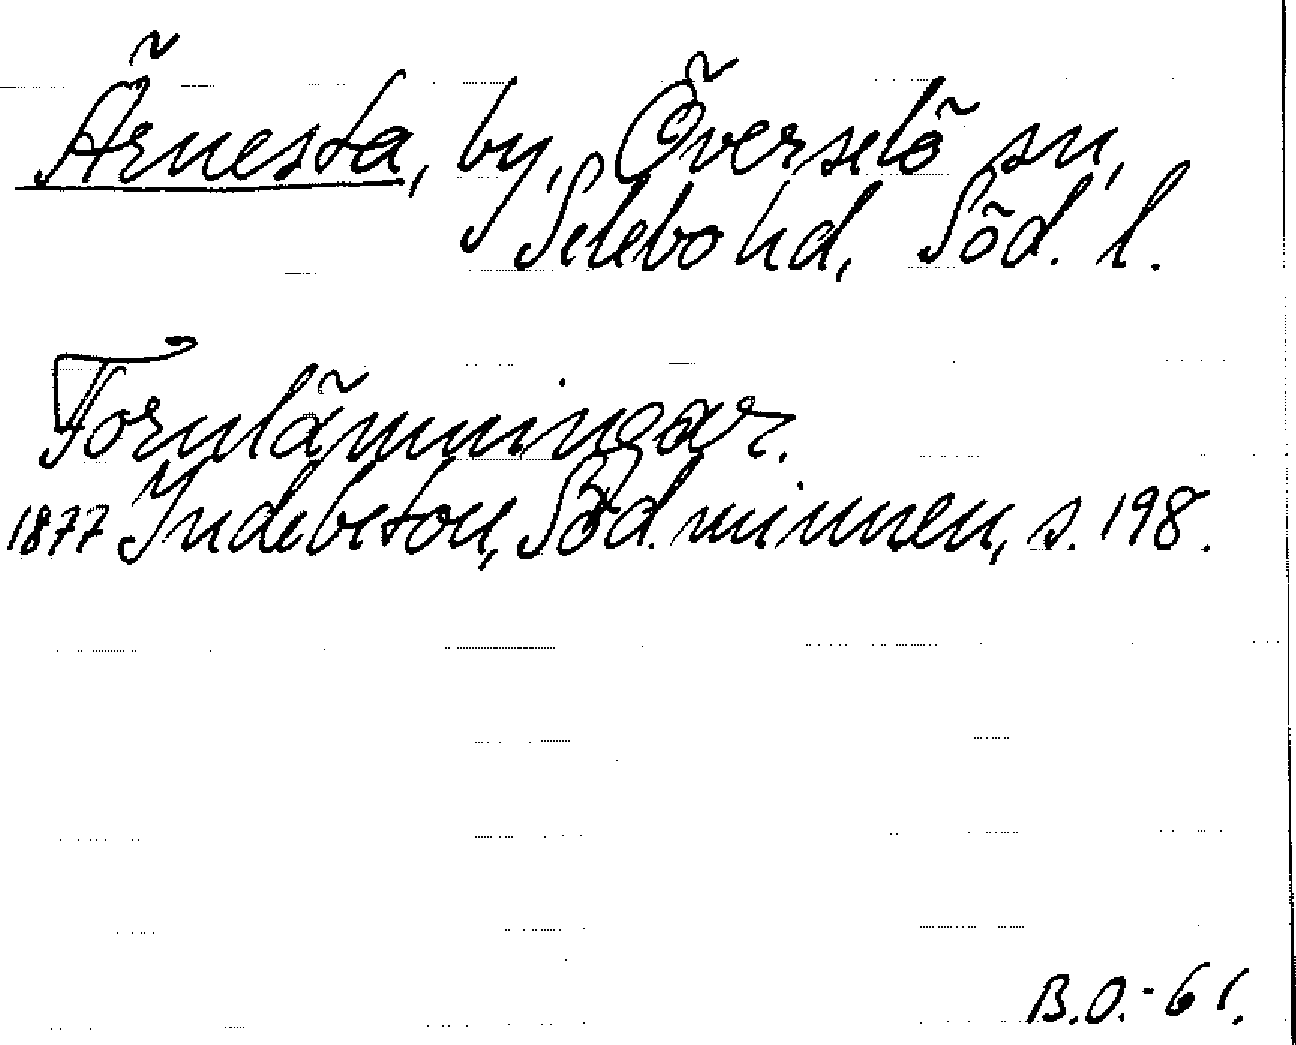 Ärnesta, by, Överselö sn,
Selebo hd, Söd. l.
Fornlämningar.
1877 Indebetou, Söd. minnen, s. 198.
B.O.-61.